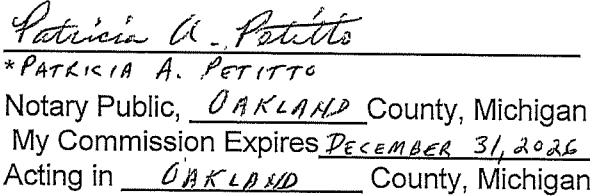 Patricia A. Petitto
*PATRICIA A. PETITTO
Notary Public, OAKLAND County, Michigan
My Commission Expires DECEMBER 31, 2026
Acting in OAKLAND County, Michigan